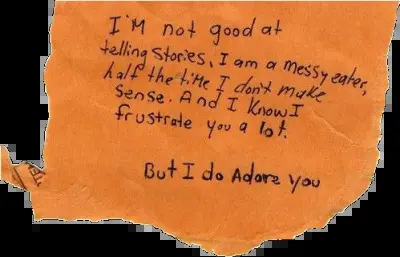 I'M not good at
telling stories. I am a messy eater,
half the tiMe I don't make
sense. And I Know I
frustrate you a lot.
But I do Adore you